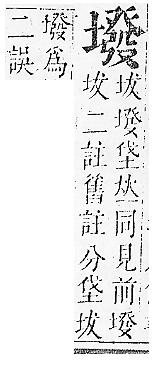 墢
坺墢垡同見前墢
坺二註舊註分垡坺
墢爲
二誤